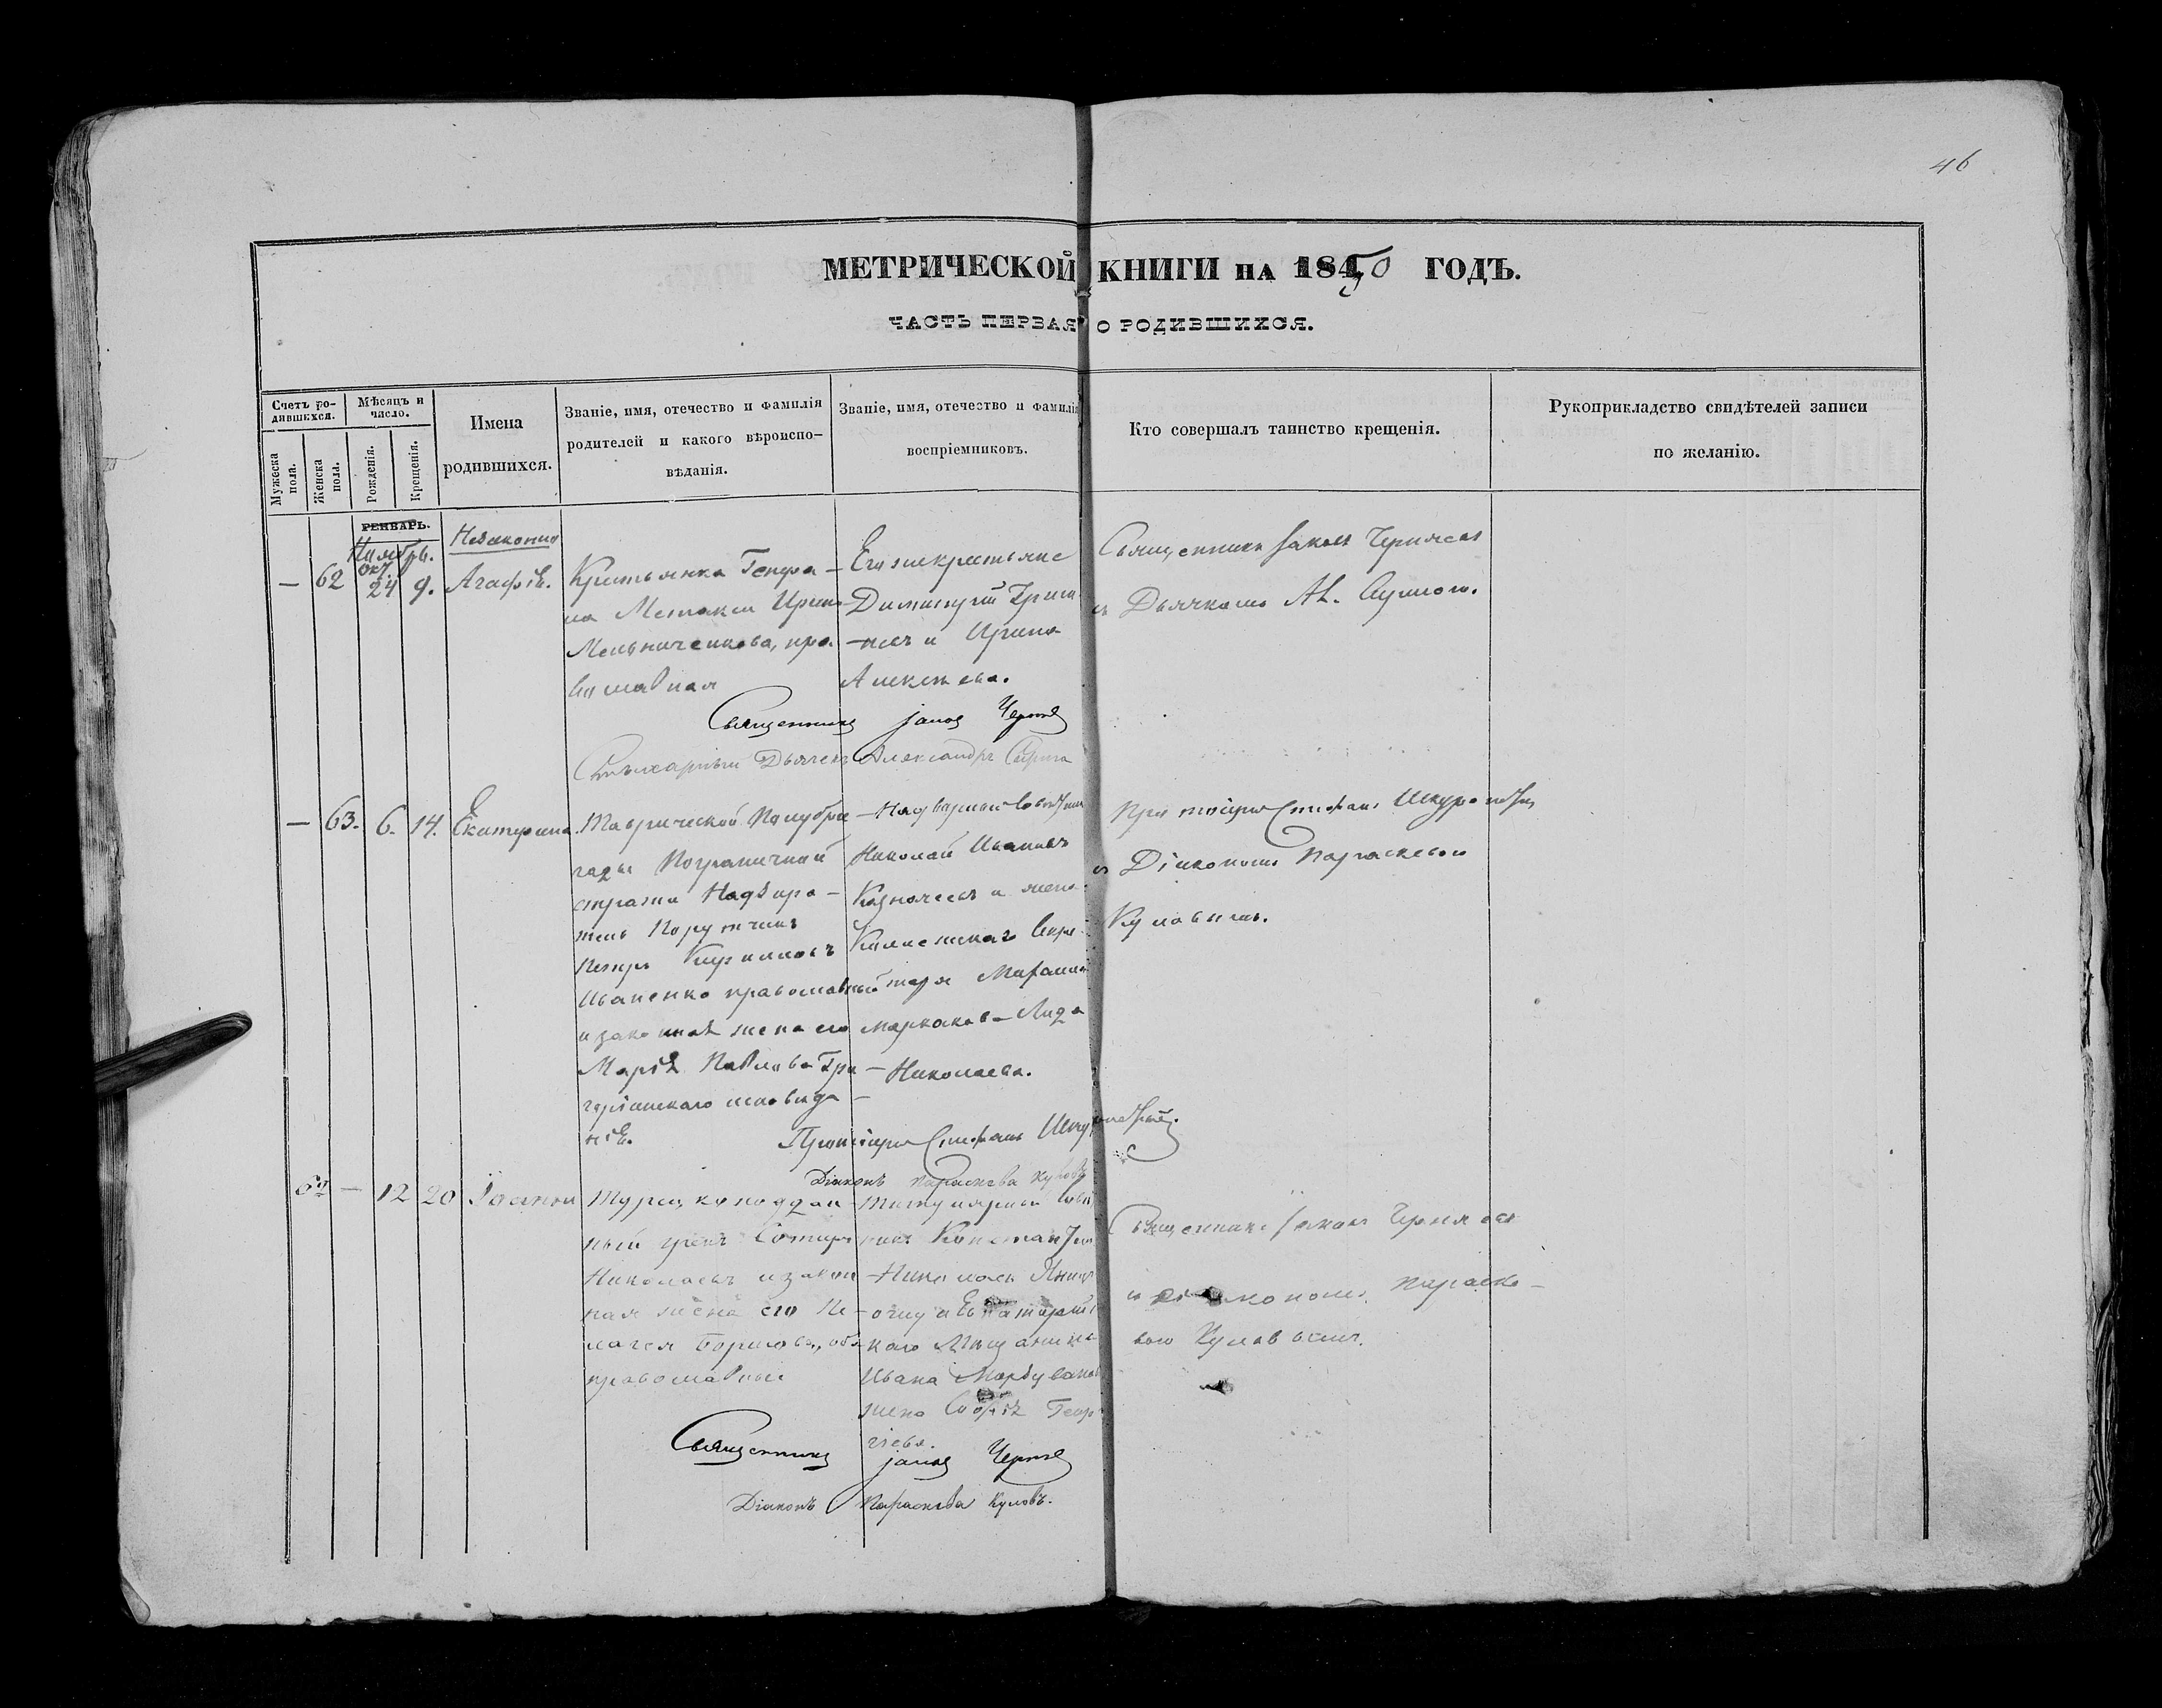 46
МЕТРИЧЕСКОЙ КНИГИ НА 1850 ГОДЪ.
ЧАСТЬ ПЕРВАЯ О РОДИВШИХСЯ.
Счетъ ро-
дившихся.
Мужеска
пола.
Женска
пола.
Мѣсяцъ и
число.
Рожденія.
Крещенія.
Имена
родившихся.
Званіе, имя, отечество и фамилія
родителей и какого вѣроиспо-
вѣданія.
Званіе, имя, отечество и фамилія
воспріемниковъ.
Кто совершалъ таинство крещенія.
Рукоприкладство свидѣтелей записи
по желанію.
Ноябрь.
Незаконно
— 62 Окт. 24 9. Агафія.
Крестьянка Генера-
ла
Мельниченкова, пра-
вославная
Димитрій
и Ирина
Алексѣева.
Священникъ Іаковъ Чернявс
съ Дьячкомъ Ал.
Священникъ Іаковъ Черня
Стихарный Дьячекъ Александръ
— 63. 6. 14. Екатерина.
Таврической Полубри-
гады Пограничной
стражи Надзира-
тель Поручикъ
Петръ Кириловъ
Иваненко православный
и законная жена его
Марія Павлова Гри-
горіанскаго исповѣда-
нія.
Надворный Совѣтникъ
Николай Ивановъ
Казначеевъ и жена
Колежскаго Секре-
таря
Лида
Николаева.
Протоіерей Стефанъ
съ Діакономъ Параскевою
Куловымъ.
Протоіерей Стефанъ
Діаконъ Параскева Куловъ
64 — 12 20 Іоаннъ
Турецкоподдан-
ный грекъ Сотиръ
Николаевъ и закон-
ная жена его
Борисова, оба
православные
Титулярный Совѣт-
никъ Константинъ
Николаевъ
и Евпаторій-
скаго Мѣщанина
Ивана
жена Софія Геор-
гіева.
Священникъ Іаковъ Чернявс
и діакономъ Параске-
вою Куловымъ.
Священникъ Іаковъ Черня
Діаконъ Параскева Куловъ.